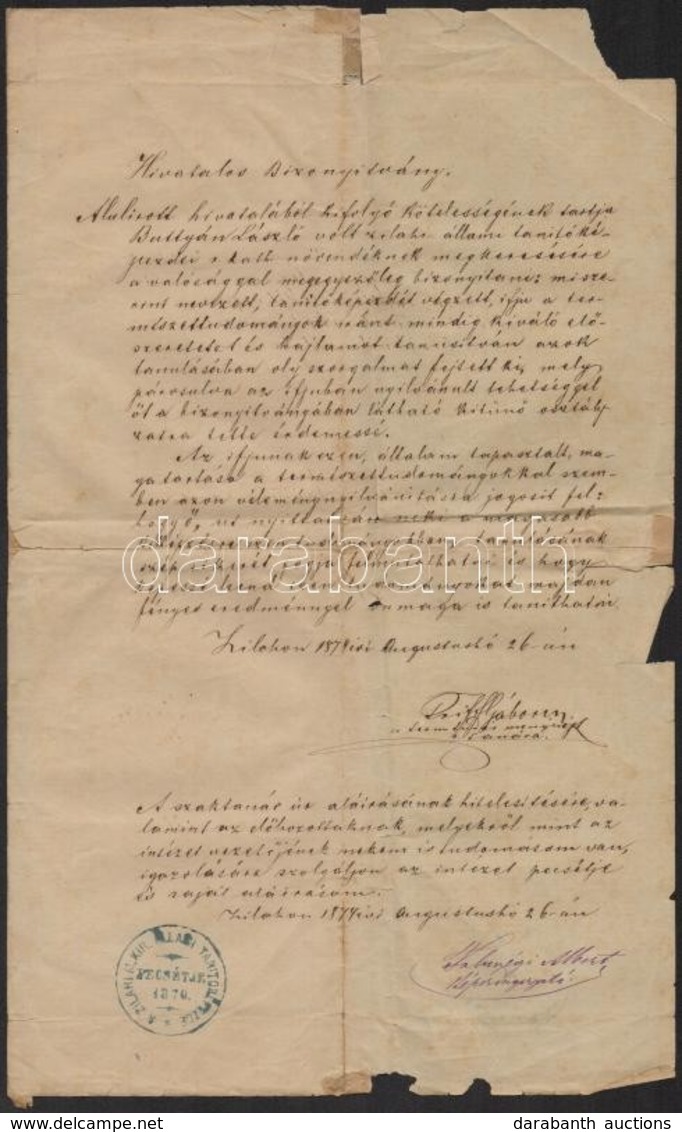 Hivatalos Bizonyitvány.
Alulirott hivatalából kifolyó kötelességének tartja
Battyán László volt zilahi állami tanitóké-
pezdei r. kath. növendéknek megkeresésére
a valósággal megegyezőleg bizonyitani: misze-
rint nevezett, tanitóképezdét végzett, ifju a ter-
mészettudományok iránt mindig kiváló elő-
szeretetet és hajlamot tanusitván azok
tanulásában oly szorgalmat fejtett ki, mely
párosulva az ifjuban nyilvánult tehetséggel
őt a bizonyitványában látható kitünő osztály-
zatra tette érdemessé.
Az ifjunak ezen, általam tapasztalt, ma-
gatartása a természettudományokkal szem-
ben azon véleménynyilvánitásra jogosit fel:
hogy, ut nyittatván neki a magasabb
tanulásának
szép sikerét fogja felmutathatni és hogy
majdan
fényes eredménnyel önmaga is tanithatni.
Zilahon 1874 évi Augustushó 26-án
Gáborm.
tanára.
A szaktanár úr aláirásának hitelesitésére, va-
lamint az előbozottaknak, melyekről mint az
intézet vezetőjének nekem is tudomásom van,
igazolására szolgáljon az intézet pecsétje
és saját aláirásom.
Zilahon 1874 évi Augustushó 26-án
Albert,
A ZILAHI M. KIR. ÁLLAMI TANITÓKÉPEZDE
PECSÉTJE
1870.
darabanth
darabanth auctions